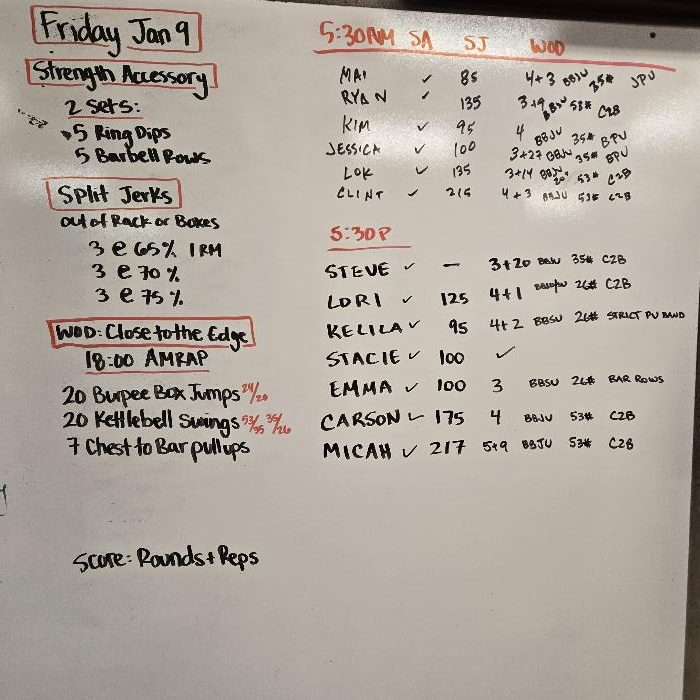 Friday Jan 9
Strength Accessory
2 sets:
5 Ring Dips
5 Barbell Rows
Split Jerks
out of Rack or Boxes
3 @ 65% 1RM
3 @ 70%
3 @ 75%
WOD: Close to the Edge
18:00 AMRAP
20 Burpee Box Jumps 24/20
20 Kettlebell Swings 53/35 35/26
7 Chest to Bar pullups
Score: Rounds + Reps
5:30AM SA SJ WOD
MAI ✓ 85 4+3 BBJU 35# JPU
RYAN ✓ 135 3+9 BBJU 53# C2B
KIM ✓ 95 4 BBJU 35# BPU
JESSICA ✓ 100 3+27 BBJU 35# BPU
LOK ✓ 135 3+14 BBJU 20" 53# C2B
CLINT ✓ 215 4+3 BBJU 53# C2B
5:30P
STEVE ✓ — 3+20 35# C2B
LORI ✓ 125 4+1 26# C2B
KELILA ✓ 95 4+2 BBSU 26# STRICT PU BAND
STACIE ✓ 100 ✓
EMMA ✓ 100 3 BBSU 26# BAR ROWS
CARSON ✓ 175 4 BBJU 53# C2B
MICAH ✓ 217 5+9 BBJU 53# C2B